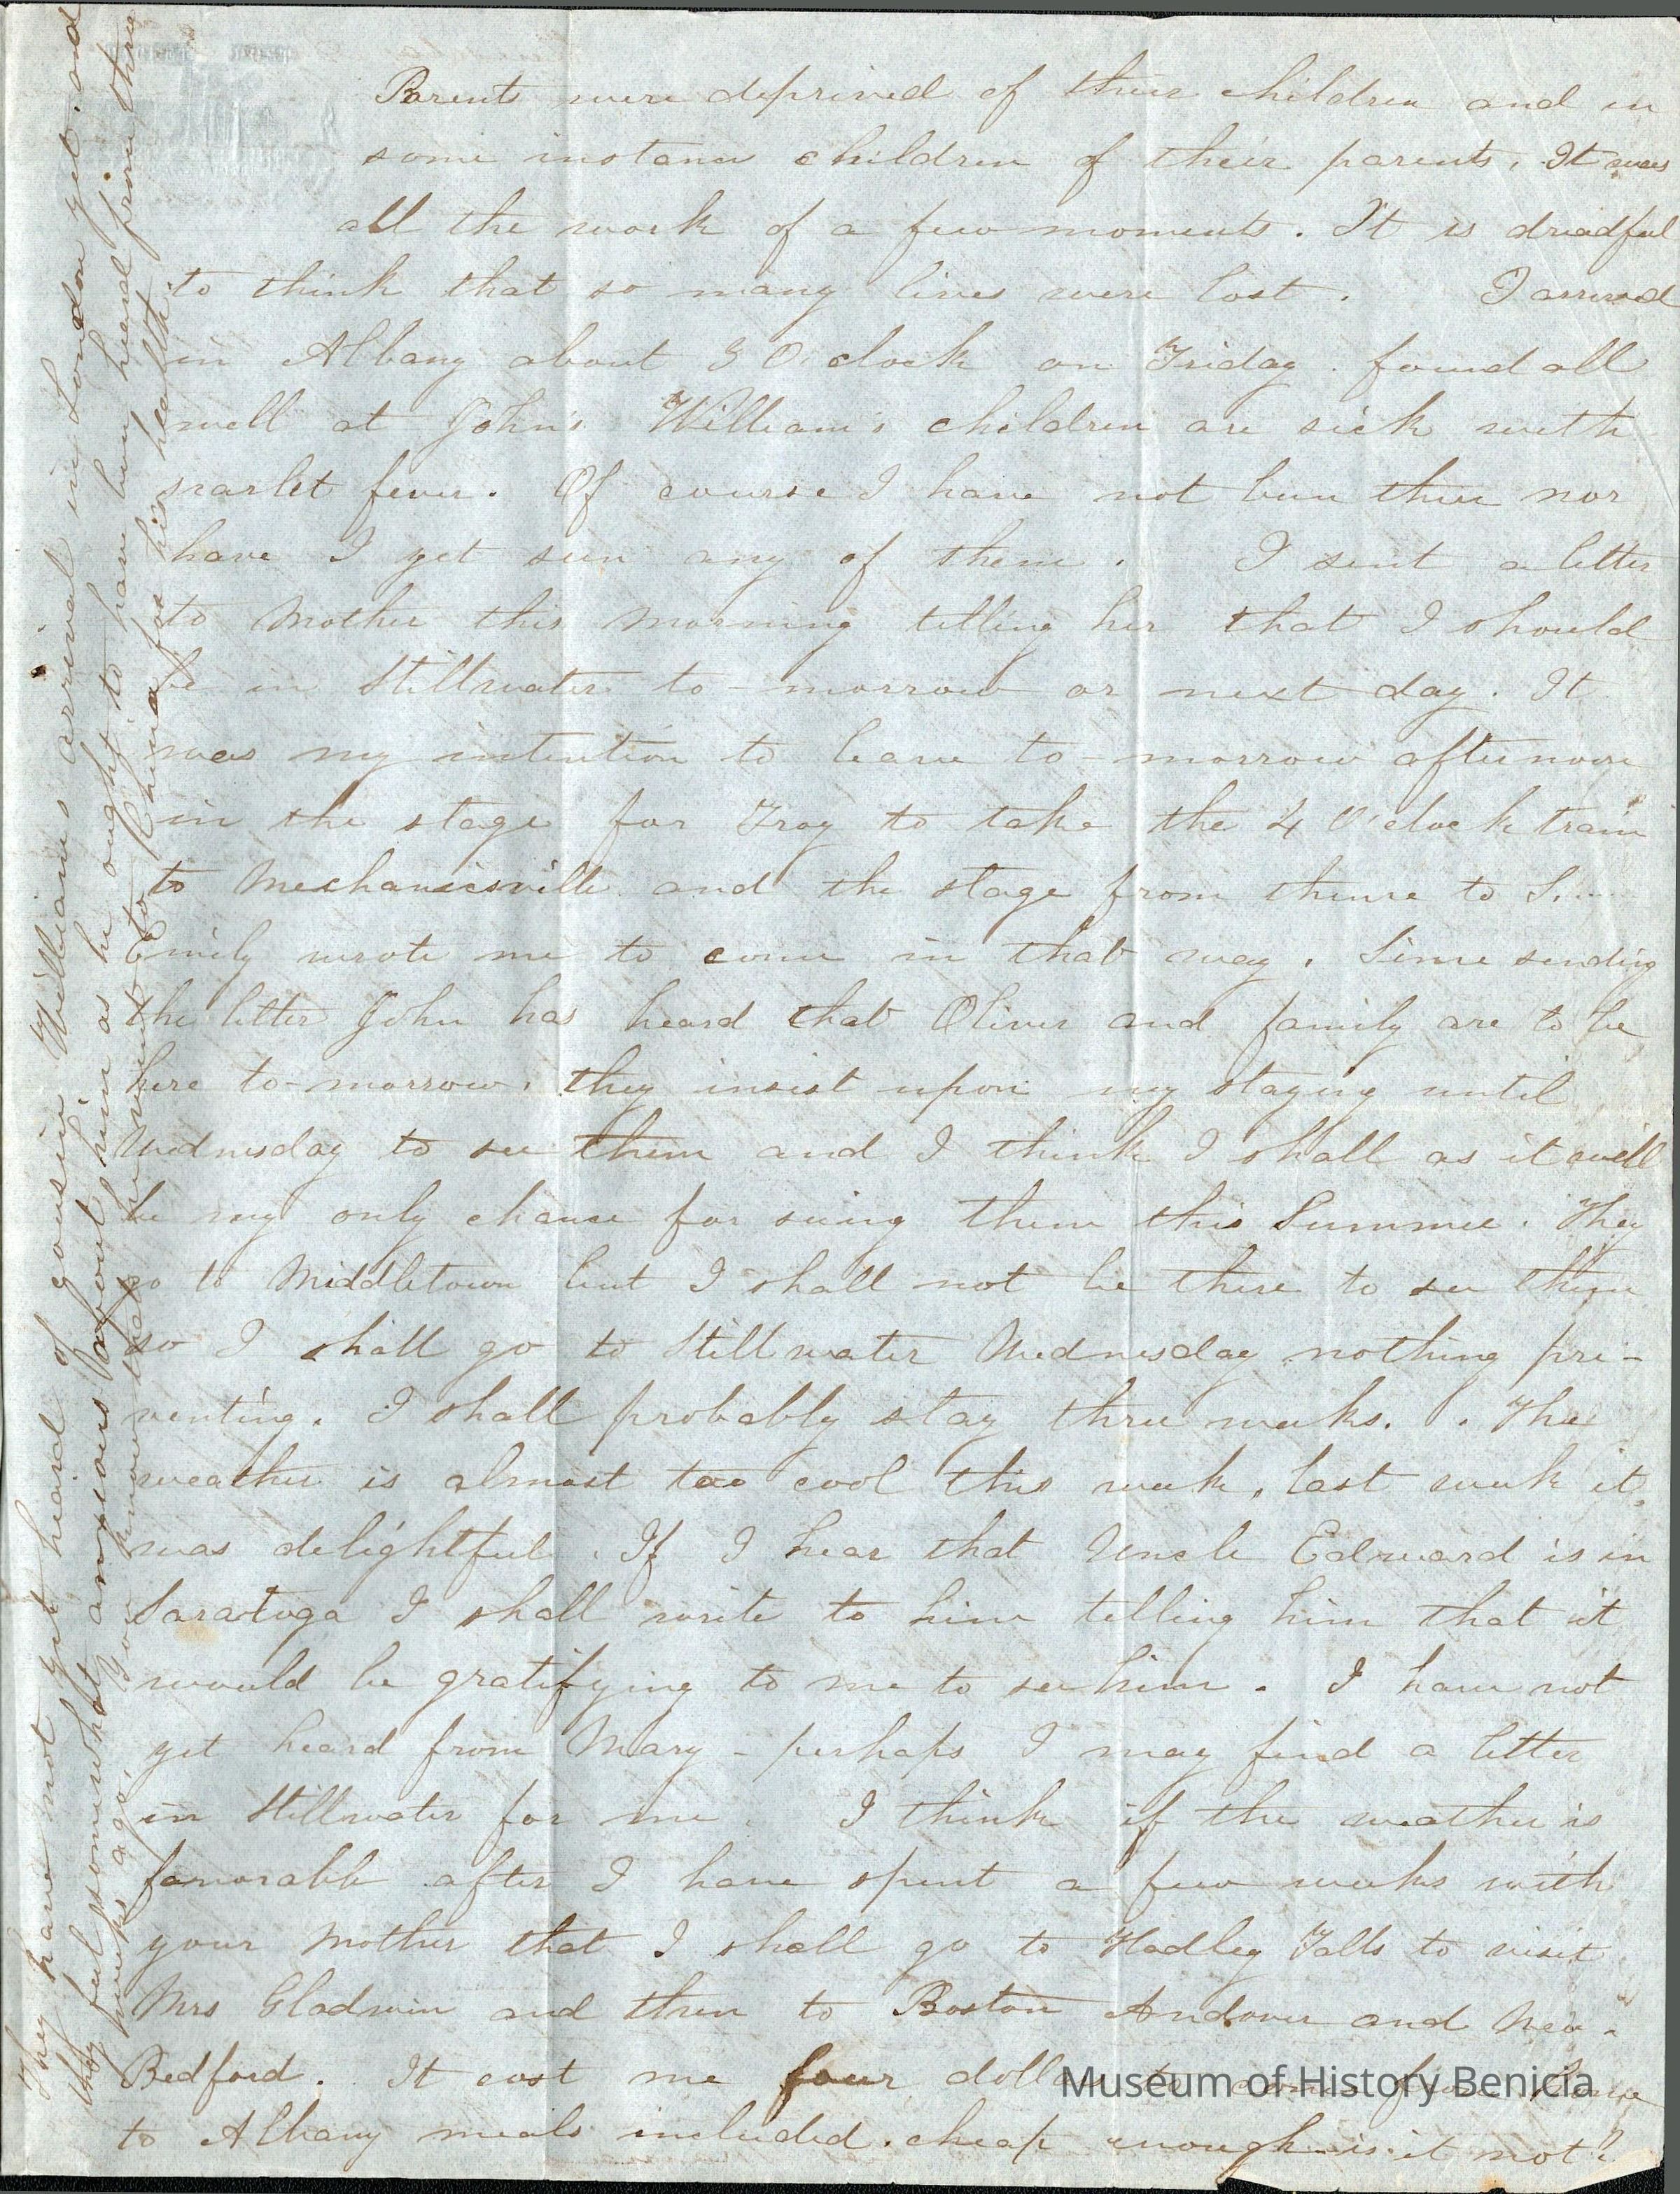 Parents were deprived of their children and in
some instance children of their parents. It was
all the work of a few moments. It is dreadful
to think that so many lives were lost. I arrived
in Albany about 3 O'clock on Friday. found all
well at John's William's children are sick with
scarlet fever. Of course I have not been there nor
have I yet seen any of them. I sent a letter
to Mother this morning telling her that I should
be in Stillwater to-morrow or next day. It
was my intention to leave to-morrow afternoon
in the stage for Troy to take the 4 O'clock train
to Mechanicsville and the stage from thence to S....
Emily wrote me to come in that way. Since sending
the letter John has heard that Oliver and family are to be
here to-morrow. they insist upon my staying until
Wednesday to see them and I think I shall as it will
be my only chance for seeing them this Summer. They
go to Middletown but I shall not be there to see them
so I shall go to Stillwater Wednesday nothing pre-
venting. I shall probably stay three weeks. The
weather is almost too cool this week, last week it
was delightful. If I hear that Uncle Edward is in
Saratoga I shall write to him telling him that it
would be gratifying to me to see him. I have not
yet heard from Mary - perhaps I may find a letter
in Stillwater for me. I think if the weather is
favorable after I have spent a few weeks with
your Mother that I shall go to Hadley Falls to visit
Mrs Gladwin and then to Boston Andover and New-
Bedford. It cost me four dollars to come from home
to Albany meals included. cheap enough is it not?
They have not yet heard of cousin William's arrival in London yet. and
they feel somewhat anxious about him as he ought to have been heard from three
weeks ago. You know that he went to China for his health.
Museum of History Benicia